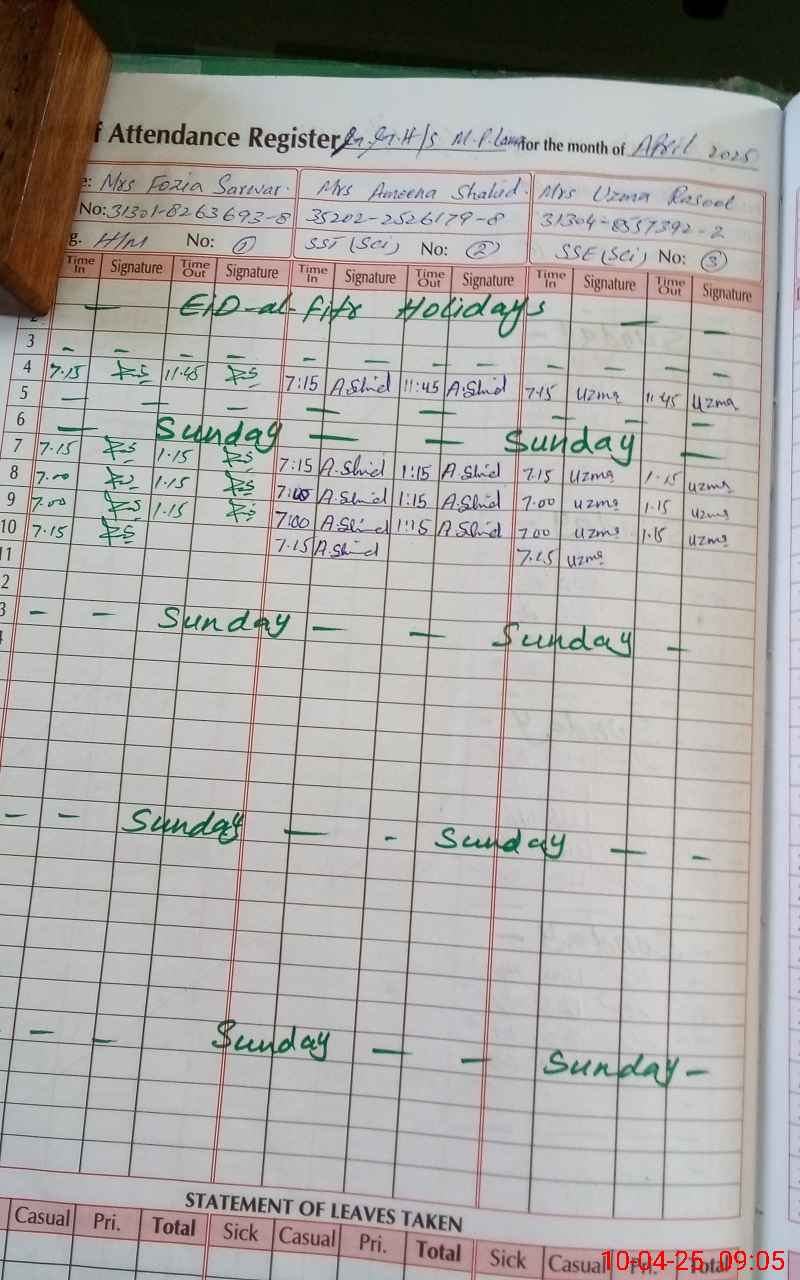 f Attendance Register G.G.H/S M.P. for the month of April 2025
e: Mrs Fozia Sarwar. Mrs Ameena Shahid. Mrs Uzma Rasool
No: 31301-8263693-8 35202-2526179-8 31304-8557392-2
g. H/M No: 1 SST (Sci) No: 2 SSE (Sci) No: 3
Time In Signature Time Out Signature Time In Signature Time Out Signature Time In Signature Time Out Signature
2 — EiD-al-fitr Holidays — —
3 - - - - - - - - - - - -
4 7.15 11.45 7:15 A.Shid 11:45 A.Shid 7.15 Uzma 11.45 Uzma
5 — — — — — — — —
6 — Sunday — — Sunday —
7 7.15 1.15 7:15 A.Shid 1:15 A.Shid 7.15 Uzma 1.15 uzma
8 7.00 1.15 7:00 A.Shid 1:15 A.Shid 7.00 uzma 1.15 uzma
9 7.00 1.15 7:00 A.Shid 1:15 A.Shid 7.00 uzma 1.15 uzma
10 7.15 7.15 A.Shid 7.15 uzma
11
2
3 - - Sunday — — Sunday -
- - Sunday — - Sunday — -
- - - Sunday — - Sunday -
STATEMENT OF LEAVES TAKEN
Casual Pri. Total Sick Casual Pri. Total Sick Casual Pri. Total
10-04-25 09:05